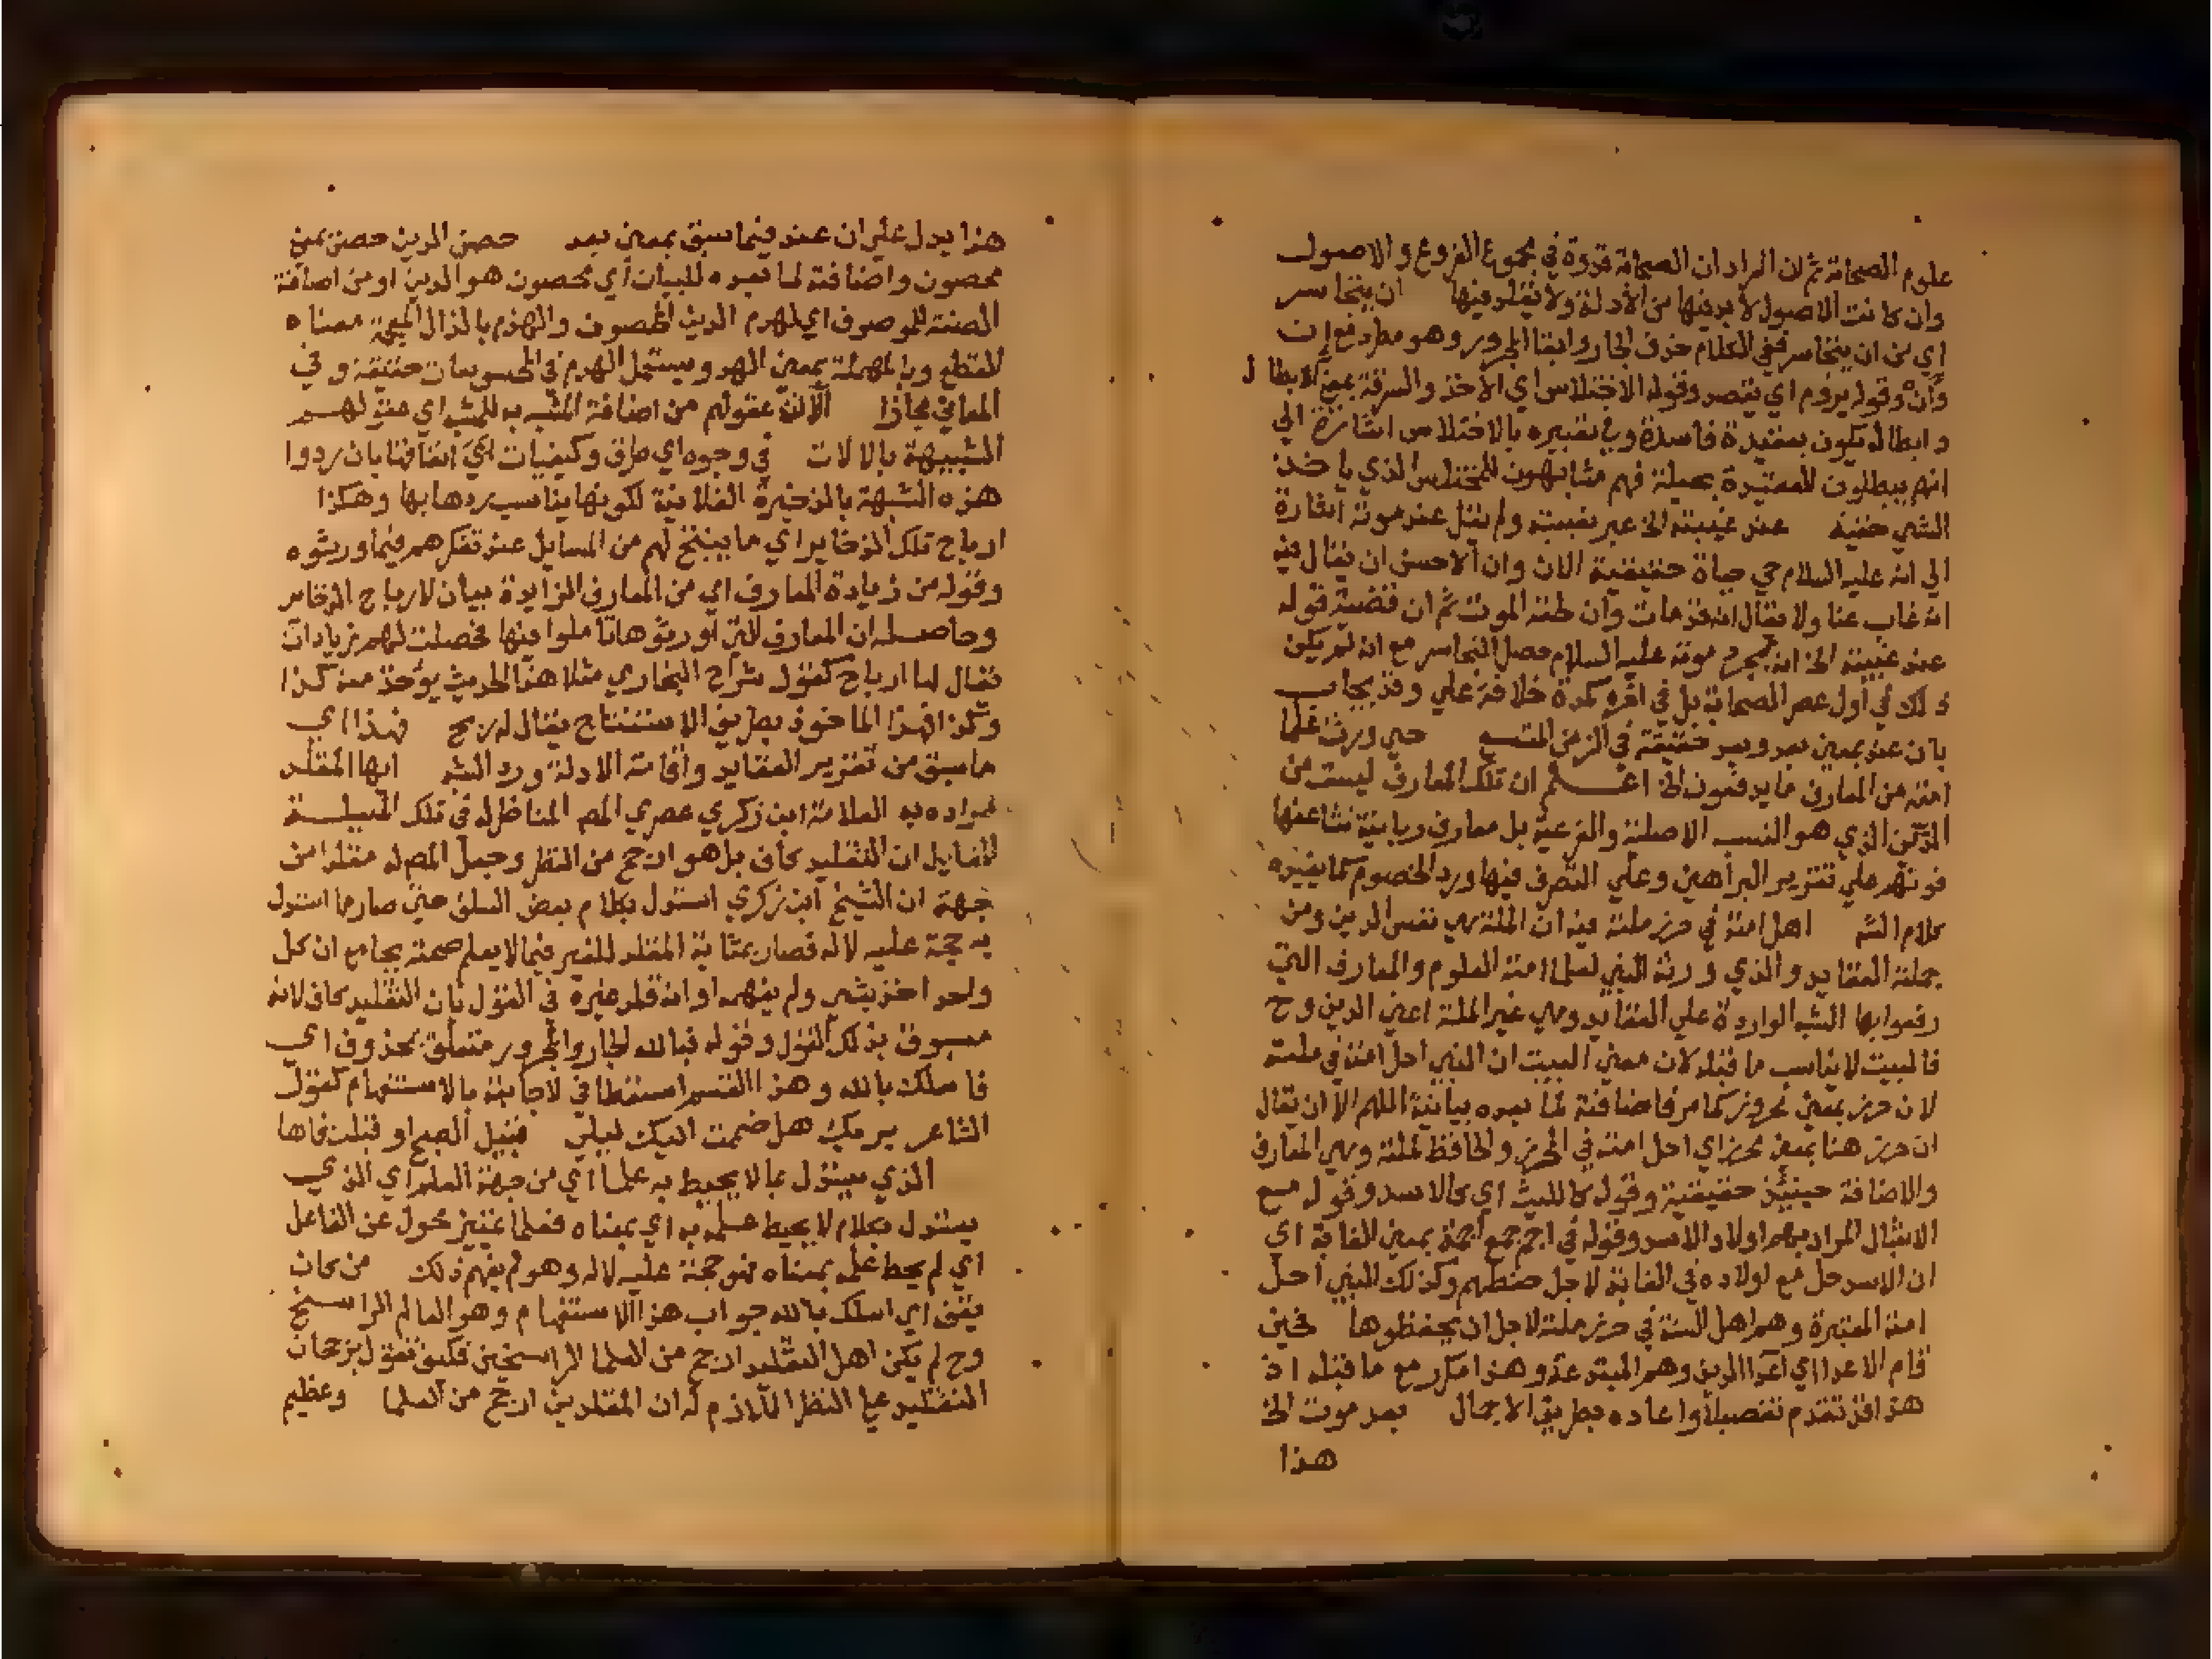 علوم الصحابة ثم ان المراد ان الصحابة قدوة في مجموع الفروع والاصول
وان كانت الاصول لا بد فيها من الأدلة ولا تقلد فيها ان يتجاسر
اي من ان يتجاسر ففي الكلام حذف الجار وابقا المجرور وهو مطرد مع إن
وأنْ وقوله يروم اي يقصد وقوله الاختلاس اي الاخذ والسرقة بمعنى الابطال
وابطاله يكون بعقيدة فاسدة وفي تعبيره بالاختلاس اشارة الي
انهم يبطلون العقيدة بحيلة فهم مشابهون للمختلس الذي ياخذ
الشي خفية عند غيبته الخ عبر بغيبته ولم يقل عند موته اشارة
الي انه عليه السلام حي حياة حقيقية الان وان الاحسن ان يقال فيه
انه غاب عنا ولا يقال انه قد مات وان طنه الموت ثم ان قضية قوله
عند غيبته الخ انه بمجرد موته عليه السلام حصل التجاسر مع انه لم يكن
ذلك في اول عصر الصحابة بل في اخره كمدة خلافة علي وقد يجاب
بان عند بمعني بعد وبعد حقيقة في الزمن المتسع حي ورث علما
امته من المعارف ما يدفعون الخ اعلم ان تلك المعارف ليست من
الدين الذي هو النسب الاصلية والفرعية بل معارف ربانية نشا عنها
قوتهم علي تقرير البراهين وعلي التصرف فيها ورد الخصوم كما يفيده
كلام الشـ اهل امته في حرز ملته فيه ان الملة هي نفس الدين ومن
جملته العقايد والذي ورثه النبي لعلما امته العلوم والمعارف التي
دفعوا بها الشبه الواردة علي العقايد وهي غير الملة اعني الدين وح
فالبيت لا يناسب ما قبله لان معني البيت ان النبي احل امته في ملته
لان حرز بمعني محروز كما مر فاضافته لما بعده بيانية اللهم الا ان يقال
ان حرز هنا بمعني محرز اي احل امته في المحرز والحافظ لملته وهي المعارف
والاضافة حينئذ حقيقية وقوله كالليث اي كالاسد وقوله مع
الاشبال المراد بهم اولاد الاسد وقوله في اجم جمع اجمة بمعني الغابة اي
ان الاسد حل مع اولاده في الغابة لاجل حفظهم وكذلك النبي احل
امته المعتبرة وهم اهل السنة في حرز ملته لاجل ان يحفظوها فحين
قام الاعدا اي اعدا الدين وهم المبتدعة وهذا مكرر مع ما قبله اذ
هذا قد تقدم تفصيلا واعاده بطريق الاجمال بعد موت الخ
هذا
هذا يدل علي ان عند فيما سبق بمعني بعد حصن الدين حصن بمعني
محصون واضافته لما بعده للبيان أي محصون هو الدين او من اضافة
الصفة للموصوف اي لهدم الدين المحصون والهذم بالذال المعجمة معناه
القطع وبالمهملة بمعني الهد ويستعمل الهدم في المحسوسات حقيقة وفي
المعاني مجازا آلات عقولهم من اضافة المشبه به للمشبه اي عقولهم
الشبيهة بالالات في وجوه اي طرق وكيفيات أي انفاقنا بان ردوا
هذه الشبهة بالذخيرة الفلانية لكونها يناسب ردها بها وهكذا
ارباح تلك الذخاير اي ما ينتج لهم من المسايل عند تفكرهم فيما ورثوه
وقوله من زيادة المعارف اي من المعارف الزايدة بيان لارباح الذخاير
وحاصله ان المعارف التي تورثوها تاملوا فيها فحصلت لهم زيادات
يقال لها ارباح كقول شراح البخاري مثلا هذا الحديث يؤخذ منه كذا
وكذا فهذا الماخوذ بطريق الاستنتاج يقال له ربح فهذا اي
ما سبق من تقرير العقايد واقامة الادلة ورد الشبه ايها المقلد
مراده به العلامة ابن زكري عصري المص المناظر له في تلك المسيلة
القايل ان التقليد كاف بل هو ارجح من النظر وجعل المص له مقلدا من
جهة ان الشيخ ابن زكري استدل بكلام بعض السلف حتي صار ما استدل
به حجة عليه لا له فصار بمثابة المقلد للغير فيما لا يعلم صحته بجامع ان كل
واحد اخذ بشي ولم يفهمه او انه قلد غيره في القول بان التقليد كاف لانه
مسبوق بذلك القول وقوله فبالله الجار والمجرور متعلق بمحذوف اي
فاسلك بالله وهذا القسم استعطافي لاجابته بالاستفهام كقول
الشاعر بربك هل ضممت اليك ليلي قبيل الصبح او قبلت فاها
الذي يستدل بما لا يحيط به علما أي من جهة العلم اي الذي
يستدل بكلام لا يحيط علمه به اي بمعناه فعلما تمييز محول عن الفاعل
اي لم يحط علمه بمعناه فهو حجة عليه لا له وهو لم يفهم ذلك من كان
يثق اي اسلك بالله جواب هذا الاستفهام وهو العالم الراسخ
وح لم يكن اهل التقليد ارجح من العلما الراسخين فكيف تقول برجحان
التقليد علي النظر اللازم له ان المقلدين ارجح من العلما وعظيم